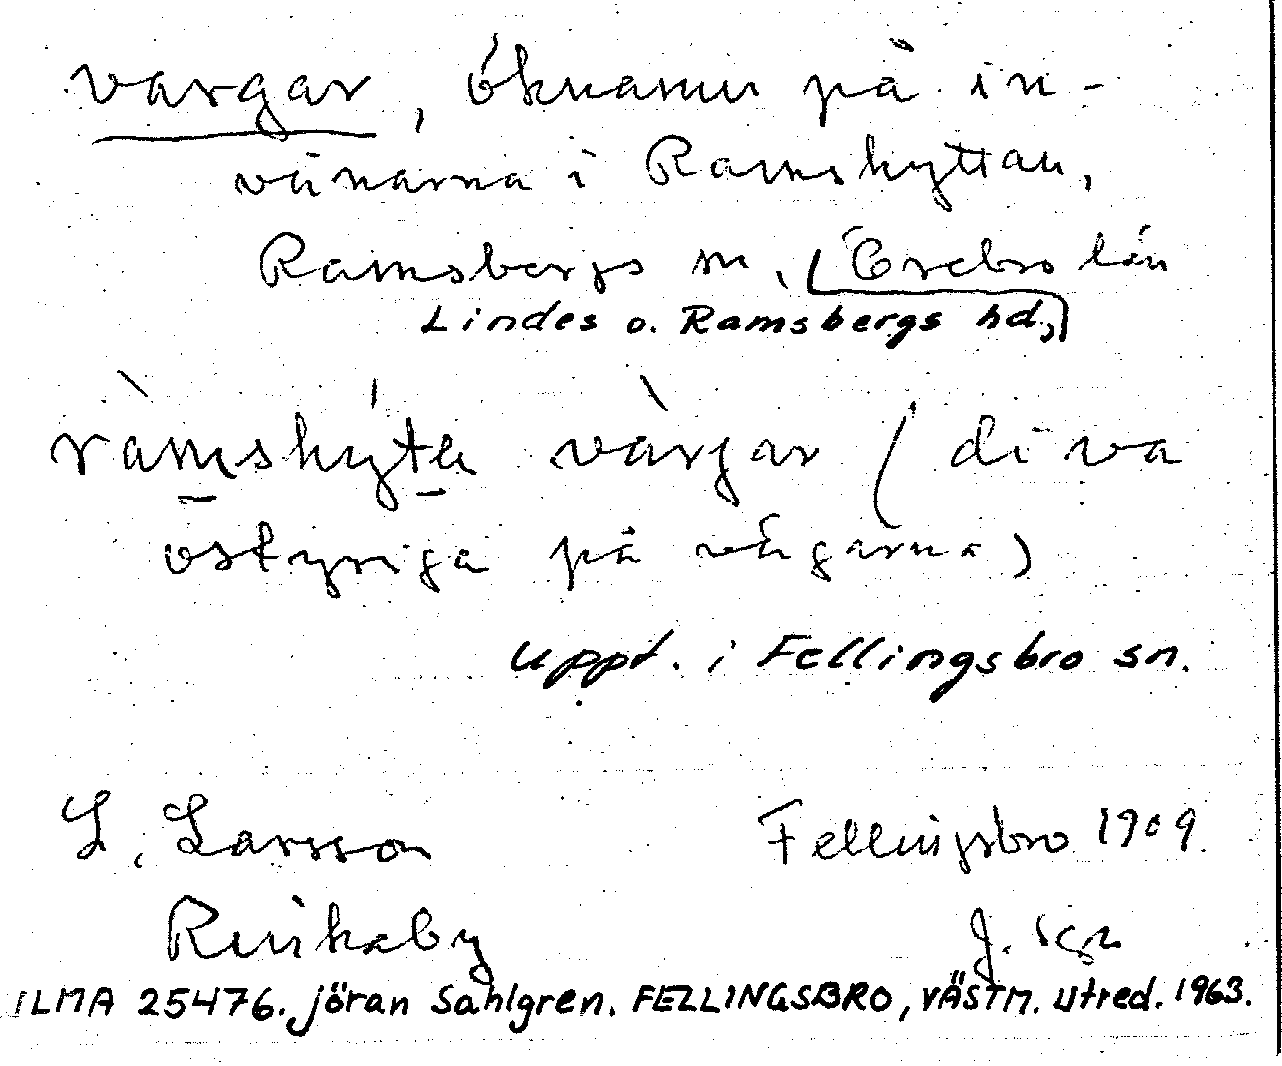 vargar, öknamn på in-
vånarna i Ramshyttan,
Ramsbergs sn, (Örebro län
Lindes o. Ramsbergs hd,)
ràmshýta vàrgar (di va
ostyriga på vägarna)
Uppt. i Fellingsbro sn.
L. Larsson Fellingsbro 1909
Rinkaby J. Sgn
ILMA 25476. Jöran Sahlgren. FELLINGSBRO, VÄSTM. Utred. 1963.